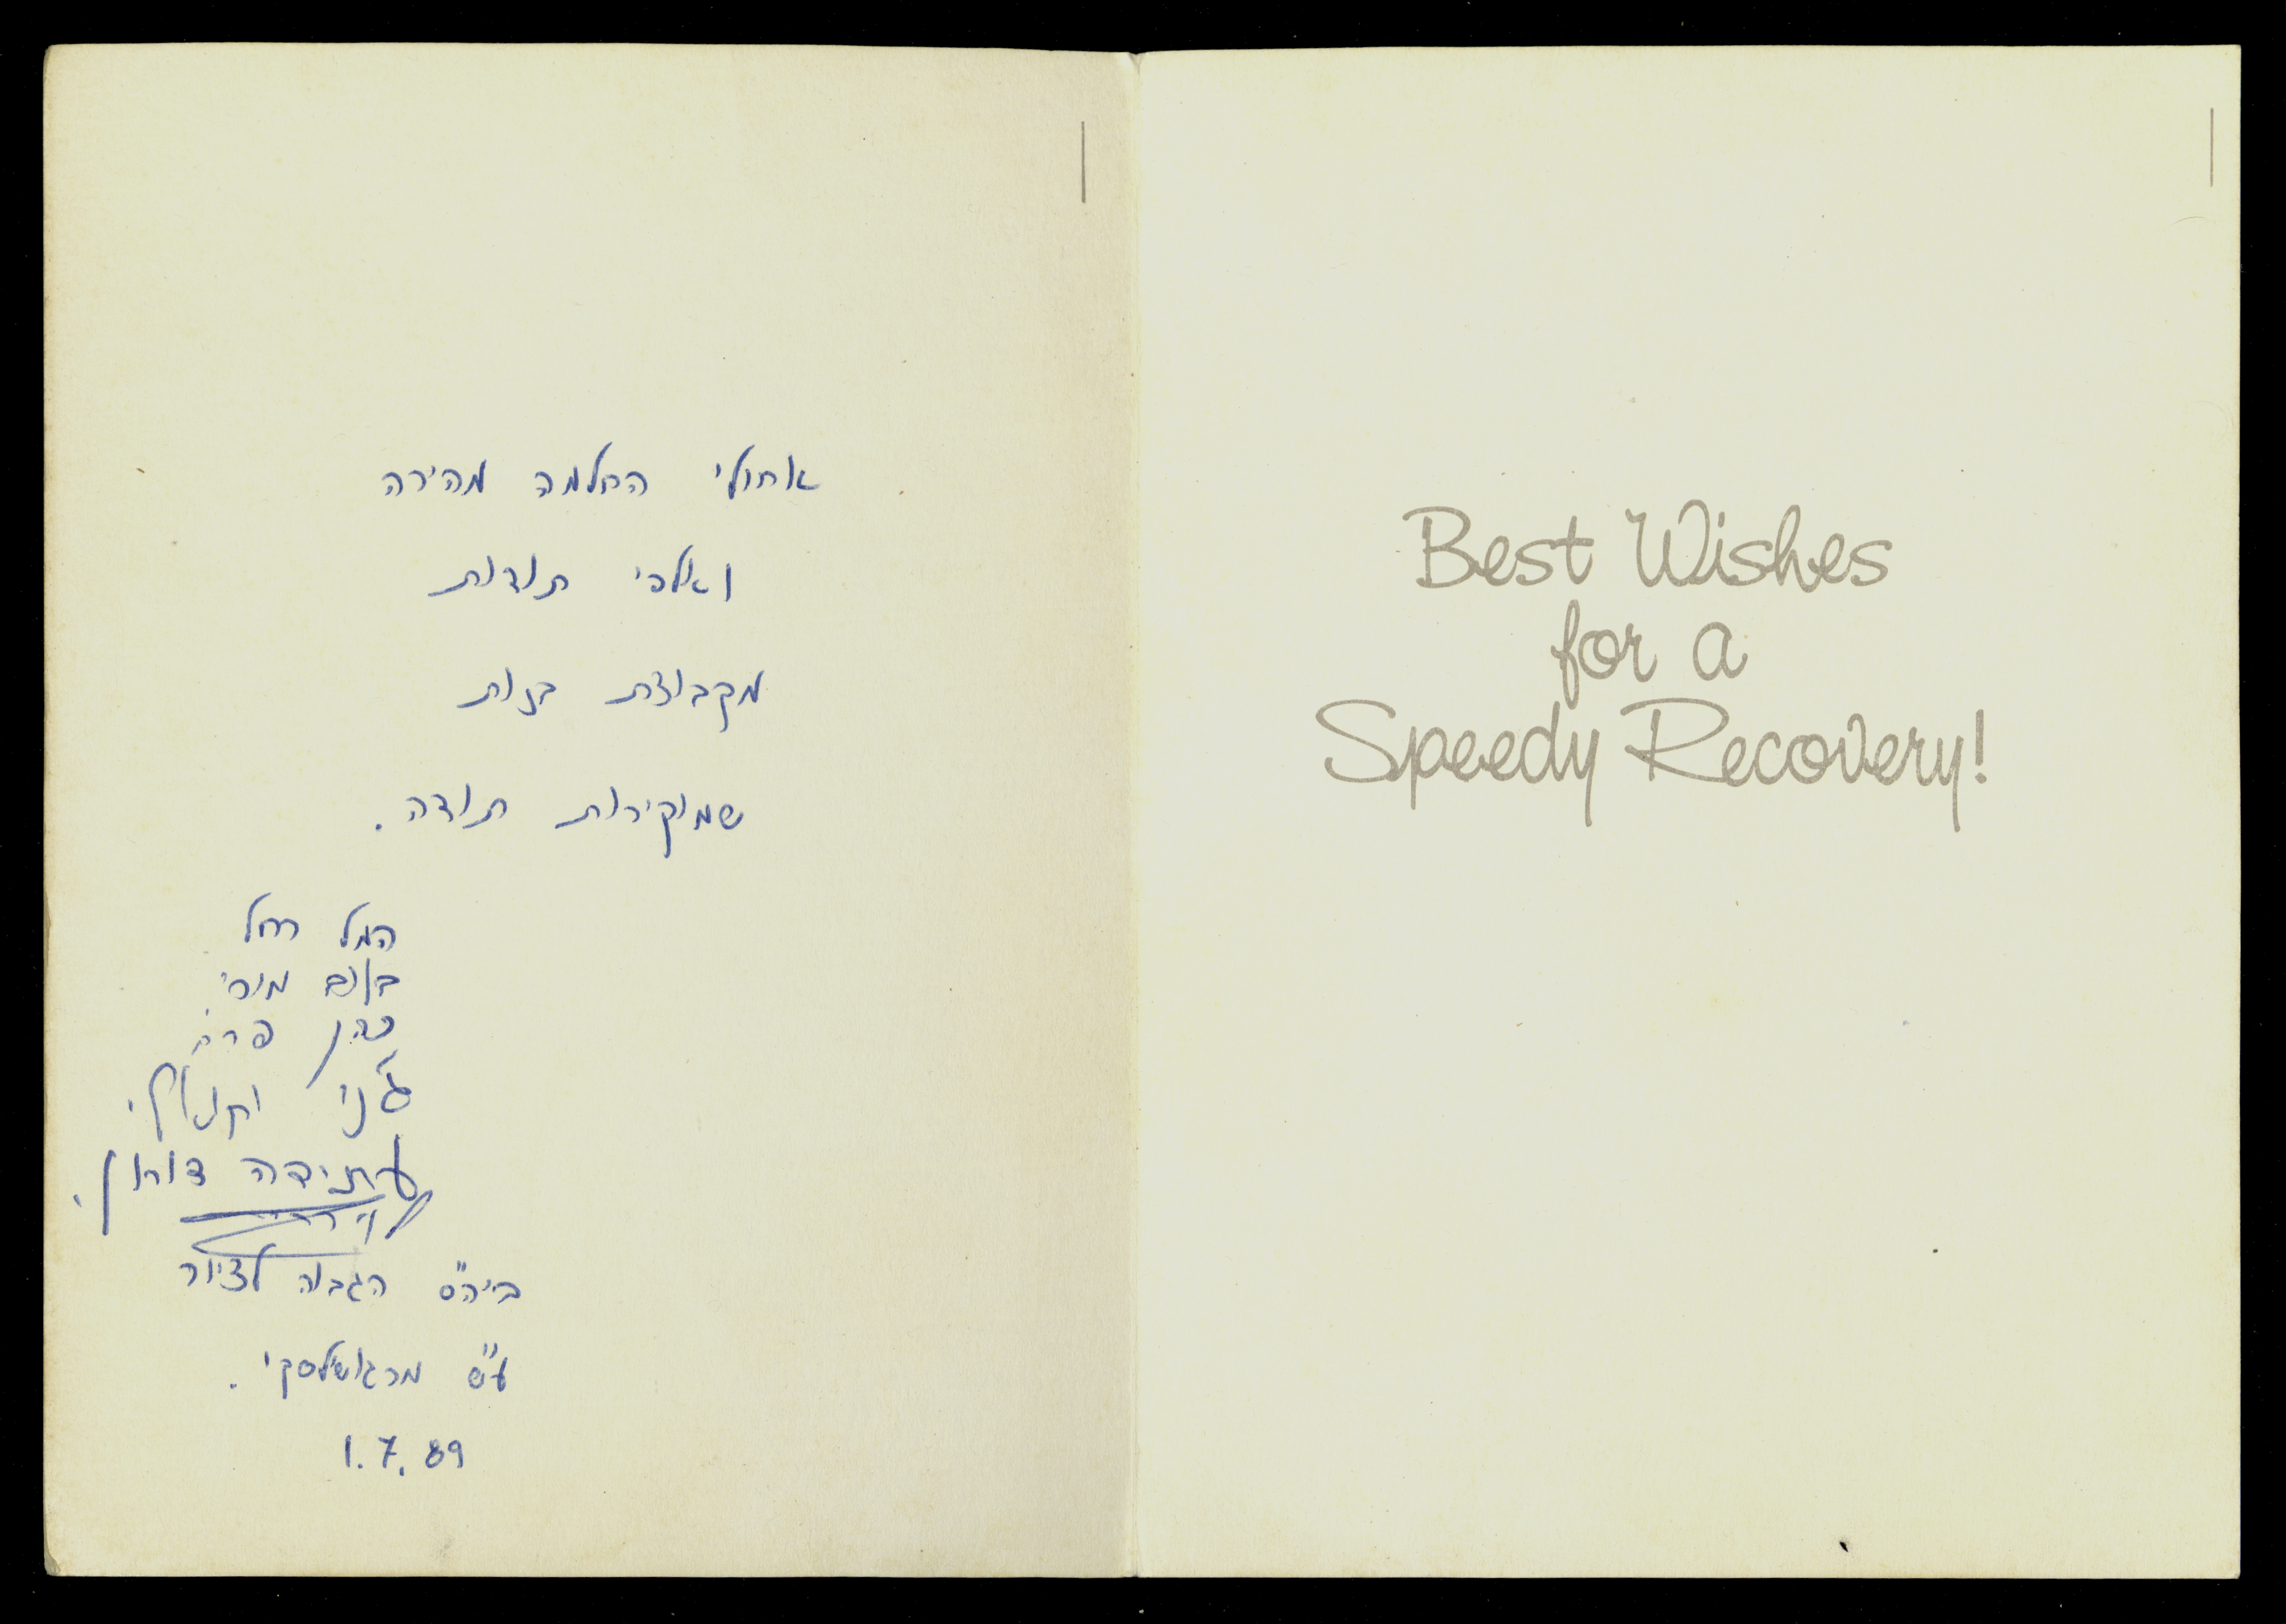 אחולי החלמה מהירה
ואלפי תודות
מקבוצת בנות
שמוקירות תודה.
המל רחל
מורי
כהן
ג'ני
עתידה דורון.
ביה"ס הגבוה לציור
ע"ש מרגושילסקי.
1.7.89
Best Wishes
for a
Speedy Recovery!